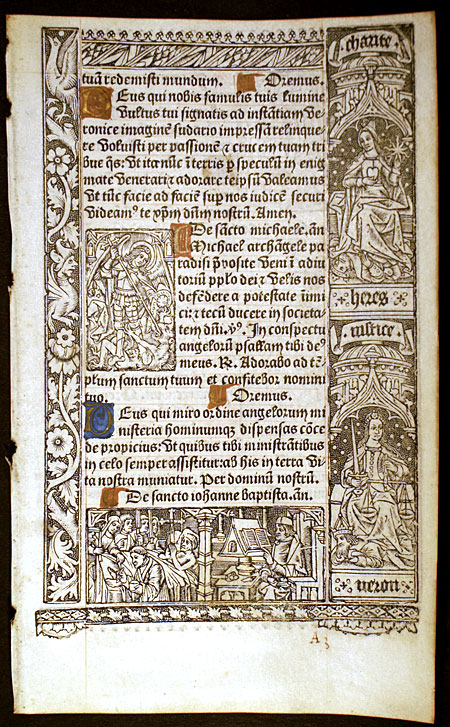 tuã redemisti mundum. Oremus.
Deus qui nobis famulis tuis lumine
vultus tui signatis ad instãtiam ve
ronice imaginẽ sudario impressã relinque
re voluisti per passionẽ ⁊ crucem tuam tri
bue q̃s: vt ita nũc ĩ terris p speculũ in enig
mate venerari ⁊ adorare te ipsũ valeamus
vt tũc facie ad faciẽ sup nos iudicẽ securi
videam⁹ te xp̃m dñm nostrũ. Amen.
De sãcto michaele. añ
Michael archãgele pa
radisi p̃posite veni ĩ adiu
toriũ pplo dei ⁊ velis nos
defẽdere a potestate inimi
ci: ⁊ tecũ ducere in societa
tem dñi. ℣. In conspectu
angelorũ psallam tibi de⁹
meus. ℟. Adorabo ad tẽ
plum sanctum tuum et confitebor nomini
tuo. Oremus.
Deus qui miro ordine angelorum mi
nisteria hominumq; dispensas cõce
de propicius: vt quibus tibi ministrãtibus
in celo semper assistitur: ab his in terra vi
ta nostra muniatur. Per dominũ nostrũ.
De sancto iohanne baptista. añ.
charite
heres
iustice
neron
A3